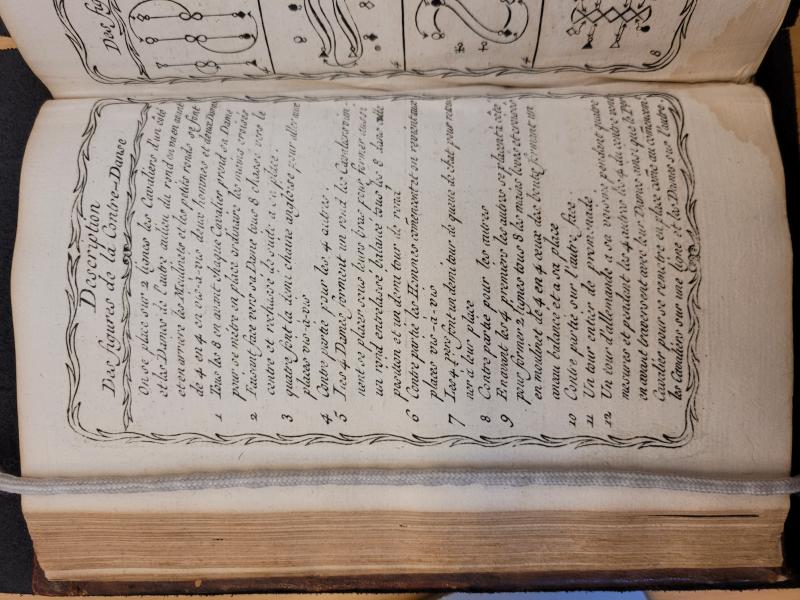 Description
Des figures de la Contre-Danse
On se place sur 2 lignes les Cavaliers d'un côté
et les Dames de l'autre au lieu du rond on va en avant
et en arrière les Moulinets et les petits ronds se font
de 4 en 4 en vis-à-vis deux hommes et deux Dames
1 Tous les 8 en avant chaque Cavalier prend sa Dame
pour se metre en place ordinaire les mains croisées
2 Faisant face vers sa Dame tous 8 chassez vers le
contre et rechassé de suite a sa place
3 quatre font la demi chaine angloise pour aller aux
places vis-à-vis
4 Contre partie pour les 4 autres
5 Les 4 Dames forment un rond les Cavaliers vien-
nent se placer sous leurs bras pour former aussi
un rond entrelassé balancé tous les 8 dans cette
position et un demi tour de rond
6 Contre partie les Hommes comencent en revenant aux
places vis-à-vis
7 Les 4 pers font un demi tour de queue de chat pour retour
ner à leur place
8 Contre partie pour les autres
9 En avant les 4 premiers les autres se placent à côté
pour former 2 lignes tous 8 les mains levées et croisées
en moulinet de 4 en 4 ceux des bouts forment un
anau balancé et a sa place
10 Contre partie sur l'autre face
11 Un tour entier de promenade
12 Un tour d'allemande a sa voisine pendant quatre
mesures et pendant les 4 autres les 4 du contre vont
en avant traversent avec leur Dames ainsi que le 1er
Cavalier pour se remetre en place come au comencemt
les Cavaliers sur une ligne et les Dames sur l'autre.
4
4
8